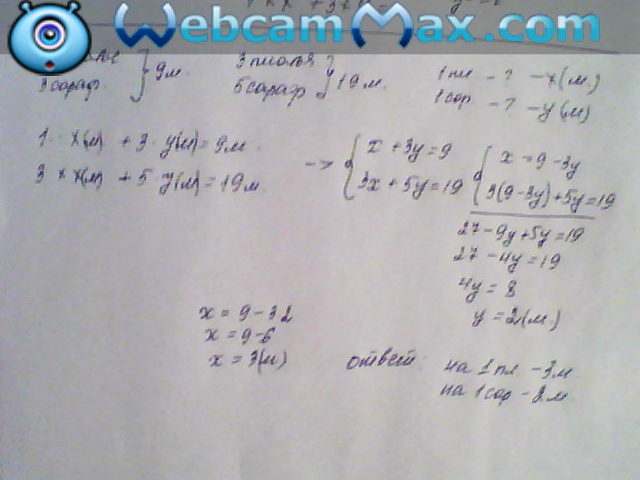 WebcamMax.com
3 сараф. } 9 м.
3 платья
5 сараф } 19 м.
1 пл. - ? - x (м.)
1 сор - ? - y (м)
1 · x(м) + 3 · y(м) = 9 м.
3 · x(м) + 5 · y(м) = 19 м.
-> { x + 3y = 9
3x + 5y = 19
{ x = 9 - 3y
3(9 - 3y) + 5y = 19
27 - 9y + 5y = 19
27 - 4y = 19
4y = 8
y = 2 (м.)
x = 9 - 32
x = 9 - 6
x = 3(м)
ответ: на 1 пл - 3 м
на 1 сор - 2 м.